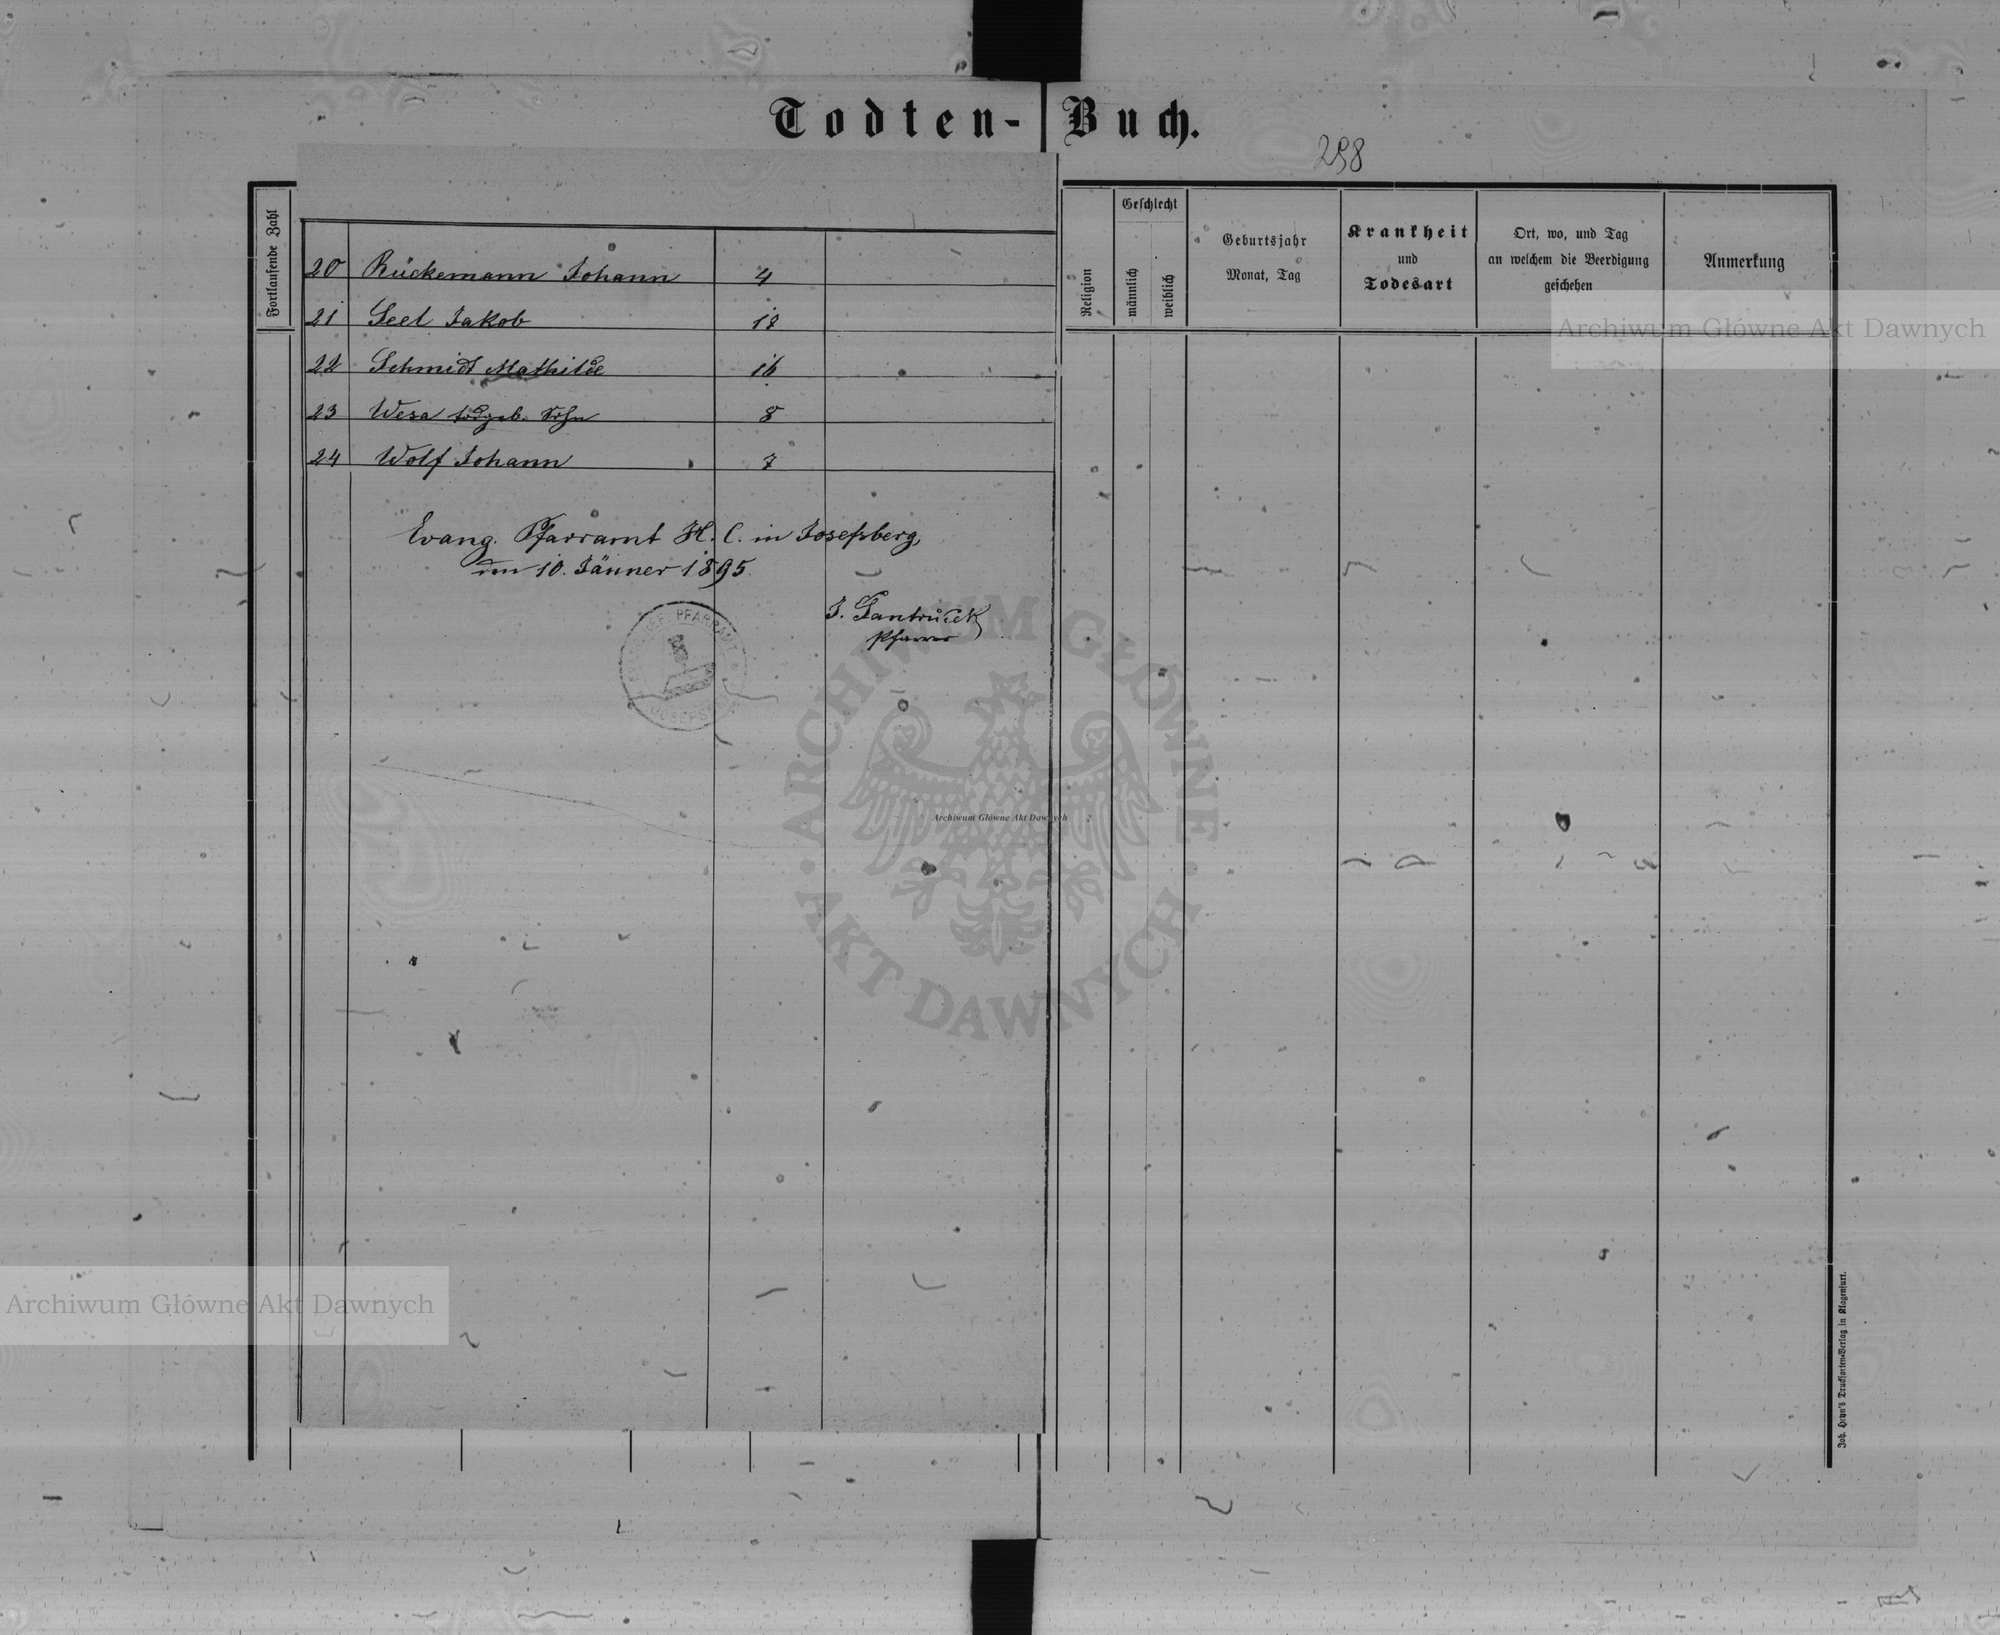 Todten-Buch.
298
Fortlaufende Zahl
Religion
Geschlecht
männlich
weiblich
Geburtsjahr
Monat, Tag
Krankheit
und
Todesart
Ort, wo, und Tag
an welchem die Beerdigung
geschehen
Anmerkung
20 Rückemann Johann 4
21 Seel Jakob 17
22 Schmidt Mathilde 16
23 Wesa todgeb. Sohn 8
24 Wolf Johann 7
Evang. Pfarramt H. C. in Josefsberg,
den 10. Jänner 1895.
Pfarrer
PFARRAMT
JOSEFSBERG
Joh. Heyn's Drucksorten-Verlag in Klagenfurt.
Archiwum Główne Akt Dawnych
ARCHIWUM GŁÓWNE AKT DAWNYCH
Archiwum Główne Akt Dawnych
Archiwum Główne Akt Dawnych